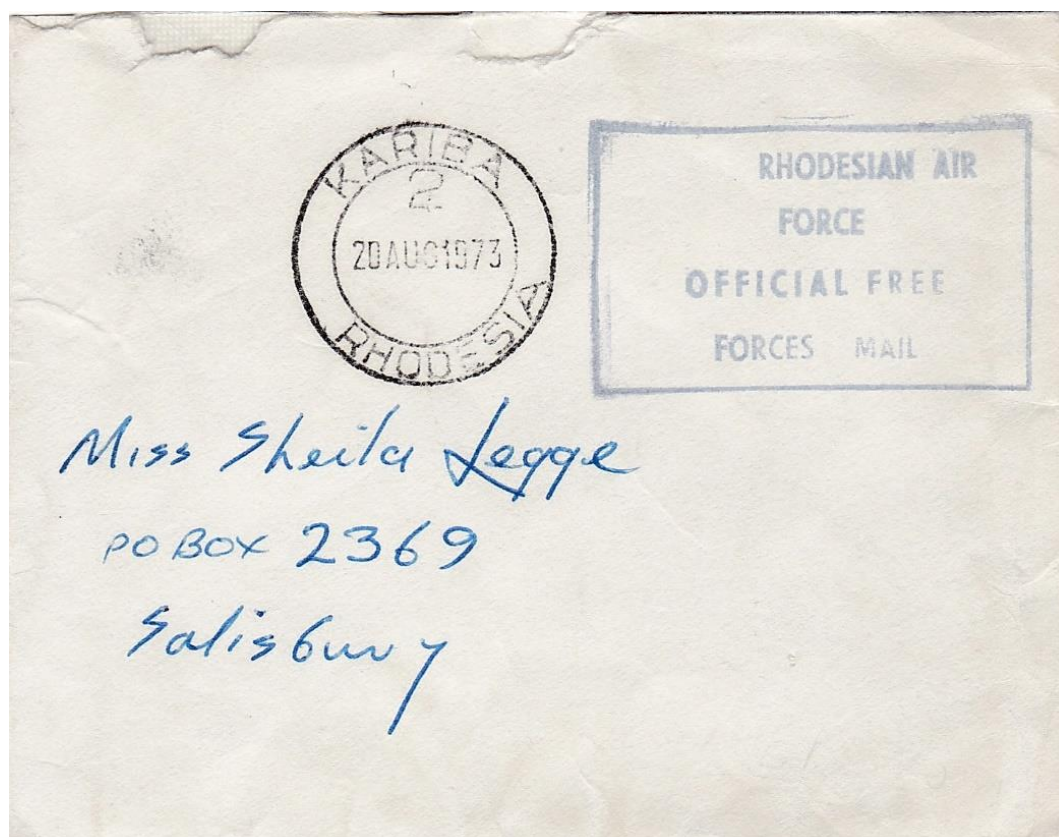 KARIBA
2
20AUG1973
RHODESIA
RHODESIAN AIR
FORCE
OFFICIAL FREE
FORCES MAIL
Miss Sheila Legge
PO BOX 2369
Salisbury